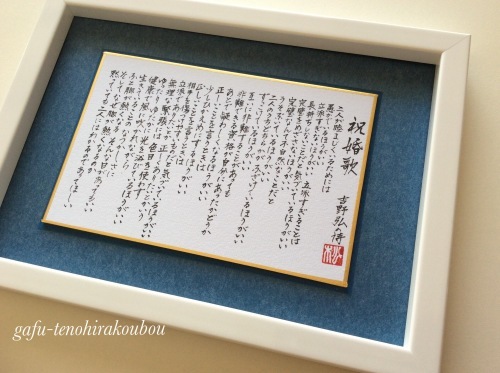 祝婚歌
吉野弘・詩
二人が睦まじくいるためには
愚かでいるほうがいい
立派すぎないほうがいい 立派すぎることは
長持ちしないことだと気づいているほうがいい
完璧をめざさないほうがいい
完璧なんて不自然なことだと
うそぶいているほうがいい
二人のうちどちらかが ふざけているほうがいい
ずっこけているほうがいい
互いに非難することがあっても
非難できる資格が自分にあったかどうか
あとで疑わしくなるほうがいい
正しいことを言うときは
少しひかえめにするほうがいい
正しいことを言うときは
相手を傷つけやすいものだと
気づいているほうがいい
立派でありたいとか 正しくありたいとかいう
無理な緊張には 色目を使わず
ゆったりゆたかに 光を浴びているほうがいい
健康で風に吹かれながら
生きていることのなつかしさに
ふと胸が熱くなる そんな日があってもいい
そしてなぜ胸が熱くなるのか
黙っていても二人にはわかるのであってほしい
gafu-tenohirakoubou